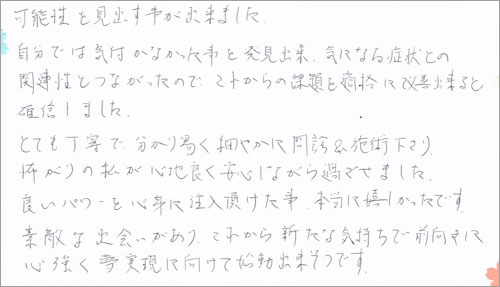 可能性を見出す事が出来ました。
自分では気付かなかった事を発見出来、気になる症状との
関連性とつながったので、これからの課題を適格に改善出来ると
確信しました。
とても丁寧で、分かり易く細やかに問診&施術下さり、
怖がりの私が心地良く安心しながら過ごせました。
良いパワーを心身に注入頂けた事、本当に嬉しかったです。
素敵な出会いがあり、これから新たな気持ちで前向きに
心強く夢実現に向けて始動出来そうです。